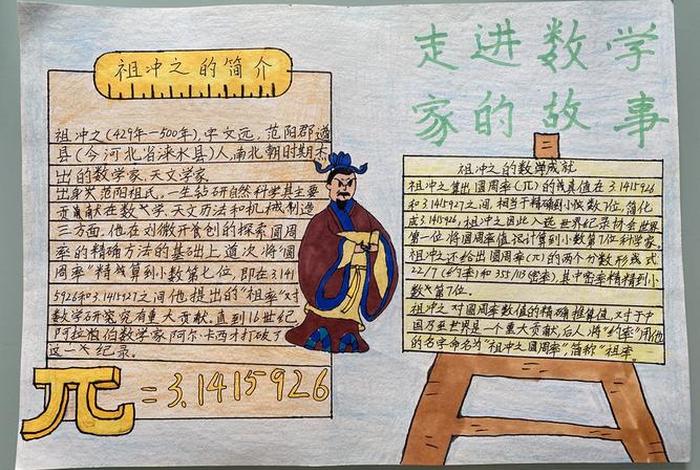 走进数学
家的故事
祖冲之的简介
祖冲之(429年-500年),字文远,范阳郡遒
县(今河北省涞水县)人,南北朝时期杰
出的数学家、天文学家
出身于范阳祖氏。一生钻研自然科学其主要
贡献在数学、天文历法和机械制造
三方面。他在刘徽开创的探索圆周
率的精确方法的基础上首次将"圆
周率"精算到小数第七位,即在3.141
5926和3.1415927之间他提出的"祖率"对
数学研究有重大贡献。直到16世纪
阿拉伯数学家阿尔·卡西才打破了
这一纪录。
兀=3.1415926
祖冲之的数学成就
祖冲之算出圆周率(兀)的真值在3.1415926
和3.1415927之间,相当于精确到小数7位,简化
成3.1415926,祖冲之因此入选世界纪录协会世界
第一位将圆周率值计算到小数第7位科学家。
祖冲之还给出圆周率(兀)的两个分数形式
22/7(约率)和355/113(密率),其中密率精确到小
数第7位。
祖冲之对圆周率数值的精确推算值,对于中
国乃至世界是一个重大贡献,后人将"约率"用他
的名字命名为"祖冲之圆周率"简称"祖率。